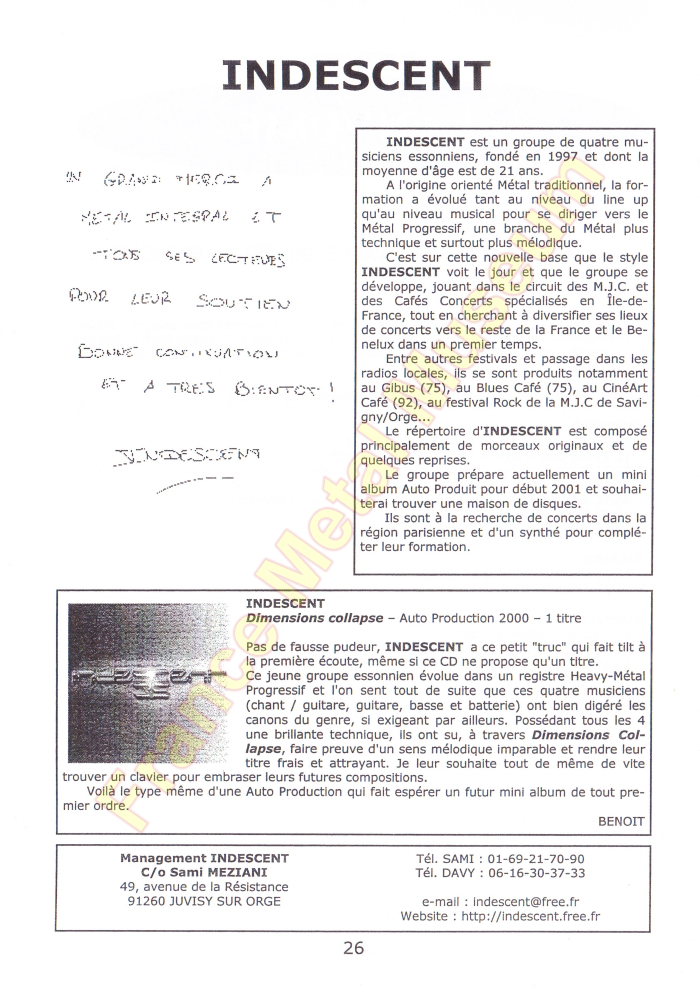 INDESCENT
UN GRAND MERCI A
METAL INTEGRAL ET
TOUS SES LECTEURS
POUR LEUR SOUTIEN
BONNE CONTINUATION
ET A TRES BIENTOT !
INDESCENT
INDESCENT est un groupe de quatre mu-
siciens essonniens, fondé en 1997 et dont la
moyenne d'âge est de 21 ans.
A l'origine orienté Métal traditionnel, la for-
mation a évolué tant au niveau du line up
qu'au niveau musical pour se diriger vers le
Métal Progressif, une branche du Métal plus
technique et surtout plus mélodique.
C'est sur cette nouvelle base que le style
INDESCENT voit le jour et que le groupe se
développe, jouant dans le circuit des M.J.C. et
des Cafés Concerts spécialisés en Île-de-
France, tout en cherchant à diversifier ses lieux
de concerts vers le reste de la France et le Be-
nelux dans un premier temps.
Entre autres festivals et passage dans les
radios locales, ils se sont produits notamment
au Gibus (75), au Blues Café (75), au CinéArt
Café (92), au festival Rock de la M.J.C de Savi-
gny/Orge...
Le répertoire d'INDESCENT est composé
principalement de morceaux originaux et de
quelques reprises.
Le groupe prépare actuellement un mini
album Auto Produit pour début 2001 et souhai-
terai trouver une maison de disques.
Ils sont à la recherche de concerts dans la
région parisienne et d'un synthé pour complé-
ter leur formation.
INDESCENT
Dimensions collapse – Auto Production 2000 – 1 titre
Pas de fausse pudeur, INDESCENT a ce petit "truc" qui fait tilt à
la première écoute, même si ce CD ne propose qu'un titre.
Ce jeune groupe essonnien évolue dans un registre Heavy-Métal
Progressif et l'on sent tout de suite que ces quatre musiciens
(chant / guitare, guitare, basse et batterie) ont bien digéré les
canons du genre, si exigeant par ailleurs. Possédant tous les 4
une brillante technique, ils ont su, à travers Dimensions Col-
lapse, faire preuve d'un sens mélodique imparable et rendre leur
titre frais et attrayant. Je leur souhaite tout de même de vite
trouver un clavier pour embraser leurs futures compositions.
Voilà le type même d'une Auto Production qui fait espérer un futur mini album de tout pre-
mier ordre.
BENOIT
indescent
Management INDESCENT
C/o Sami MEZIANI
49, avenue de la Résistance
91260 JUVISY SUR ORGE
Tél. SAMI : 01-69-21-70-90
Tél. DAVY : 06-16-30-37-33
e-mail : indescent@free.fr
Website : http://indescent.free.fr
26
France Metal Museum